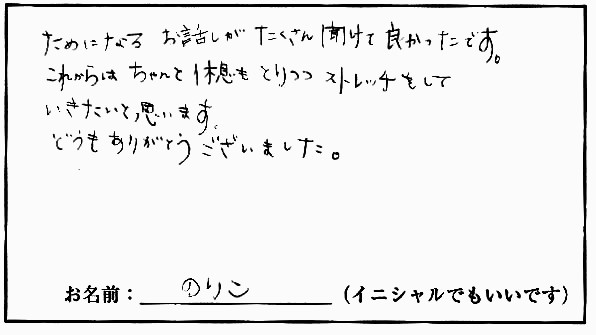 ためになる お話しが たくさん 聞けて 良かったです。
これからは ちゃんと 休憩も とりつつ ストレッチをして
いきたいと思います。
どうも ありがとう ございました。
お名前：のりこ（イニシャルでもいいです）